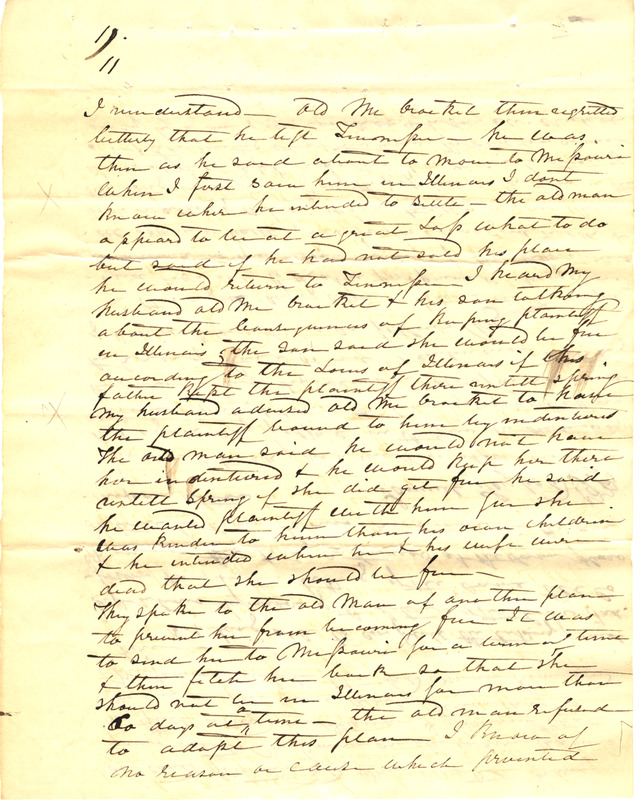 19.
11
I understand - Old Mr Crocket then regretted
bitterly that he left Tennessee - he was
then as he said about to move to Missouri
When I first saw him in Illinois I dont
know where he intended to settle - the old man
appeard to be at a great Loss what to do
but said if he had not sold his place
he would return to Tennessee I heard my
husband old Mr Crocket & his son talking
about the Consequences of keeping plaintiff
in Illinois, the son said she would be free
according to the Laws of Illinois if his
father kept the plaintiff there untill spring
My husband advised old Mr Crocket to have
the plaintiff bound to him by indentured
The old man said he would not have
her indentured & he would keep her there
untill spring if she did get free he said
he wanted plaintiff with him for she
was kinder to him than his own children
& he intended when he & his wife were
dead that she should be free -
They spoke to the old man of another plan
to prevent her from becoming free It was
to send her to Missouri for a term of time
& then fetch her back so that she
should not be in Illinois for more than
60 days at a time - the old man refused
to adopt this plan I know of
no reason or cause which prevented